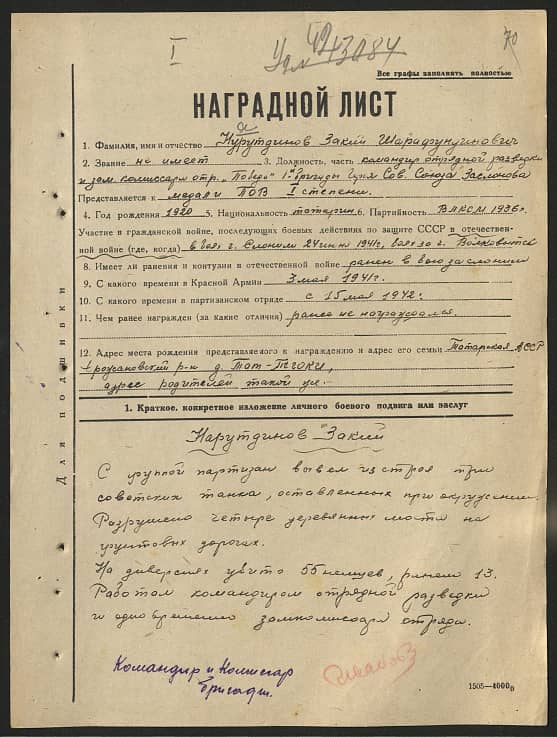 I
42
43084
70
Все графы заполнять полностью
НАГРАДНОЙ ЛИСТ
а
1. Фамилия, имя и отчество Нурутдинов Закий Шарафундинович
2. Звание не имеет 3. Должность, часть командир отрядной разведки
и зам. комиссара отр. „Победа“ 1ой бригады Героя Сов. Союза Заслонова
Представляется к медали ПОВ I степени.
4. Год рождения 1920 5. Национальность татарин 6. Партийность ВЛКСМ 1936г.
Участие в гражданской войне, последующих боевых действиях по защите СССР в отечествен-
ной войне (где, когда) в боях г. Слоним 24 июн 1941г, боях за г. Волковытск
8. Имеет ли ранения и контузии в отечественной войне ранен в бою за Слоним
9. С какого времени в Красной Армии 3 мая 1941г.
10. С какого времени в партизанском отряде с 15 мая 1942г.
11. Чем ранее награжден (за какие отличия) ранее не награждался.
12. Адрес места рождения представляемого к награждению и адрес его семьи Татарская АССР
р-н д. Тат-
адрес родителей такой же.
Для подшивки
1. Краткое, конкретное изложение личного боевого подвига или заслуг
Нарутдинов Закий
С группой партизан вывел из строя три
советских танка, оставленных при окружении.
Разрушено четыре деревянных моста на
грунтовых дорогах.
На диверсиях убито 55 немцев, ранен 13.
Работал командиром отрядной разведки
и одновременно замкомиссара отряда.
Командир и Комиссар
бригады.
1505—4000